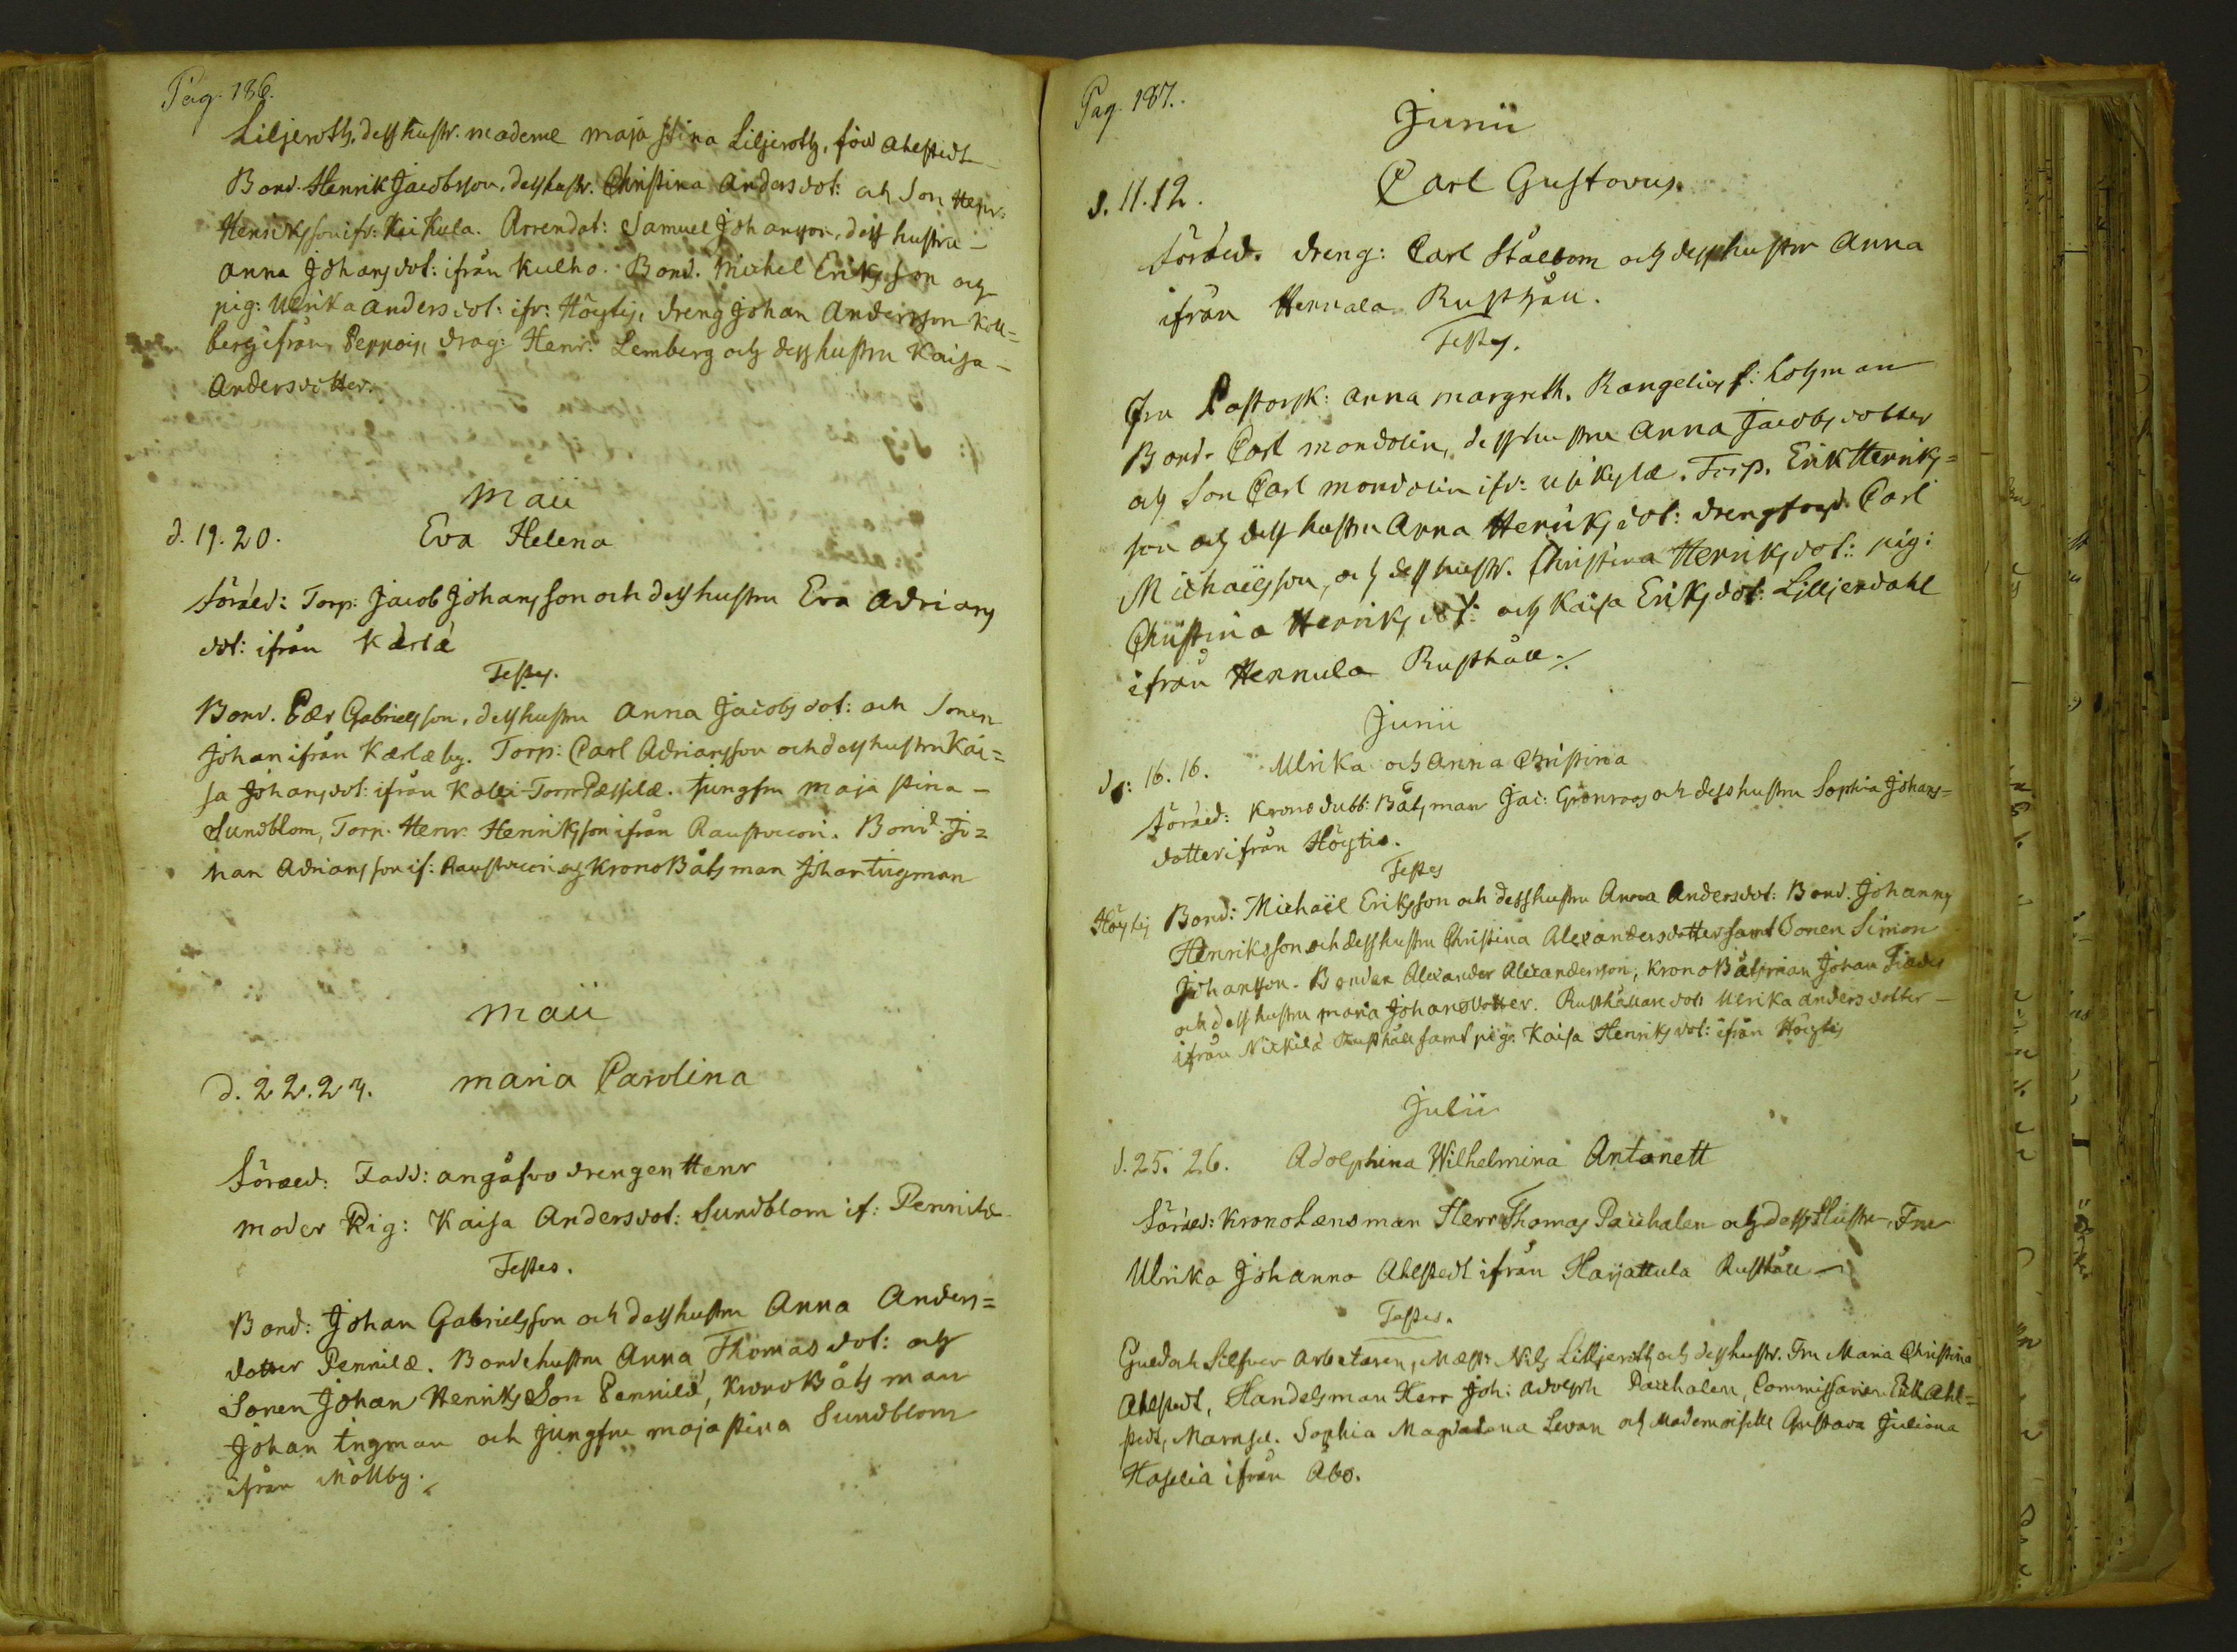 Pag. 186.
Liljeroth, dess hustr. madame maja stina Liljeroth, född Ahlstedt
Bond. Henrik Jacobsson, dess hustr. Christina Andersdot: och Son Henr:
Henriksson ifr: Kuikula. Arrendat: Samuel Johansson, dess hustru -
Anna Johansdot: ifrån Kulho. Bond. Michel Eriksson och
pig: Ulrika Andersdot: ifr: Höytis, dreng Johan Andersson Koll=
berg ifrån Peppois, drag: Henr: Lemberg och dess hustru Kaisa -
Andersdotter.
Maii
d. 19. 20. Eva Helena
föräld: Torp: Jacob Johansson och dess hustru Eva Adrians
dot: ifrån Kärlä
Testes.
Bond. Pær Gabrielsson, dess hustru Anna Jacobsdot: och Sonen
Johan ifrån Kærlæ by. Torp: Carl Adriansson och dess hustru Kai=
sa Johansdot: ifrån Torp Pässilæ. Jungfru Maja stina -
Sundblom, Torp. Henr. Henriksson ifrån Raustvuori. Bond. Jo=
han Adriansson if: Raustvuori och Krono Båtsman Johan Tingman
Maii
d. 22. 23. Maria Carolina
föräld: Fadd: angåfvo drengen Henr
moder Pig: Kaisa Andersdot: Sundblom if: Pennilæ
Testes.
Bond: Johan Gabrielsson och dess hustru Anna Anders=
dotter Pennilæ. Bondehustru Anna Thomasdot: och
Sonen Johan Henriks Son Pennilä, Krono Båtsman
Johan Tingman och Jungfru maja stina Sundblom
ifrån Mollby.
Pag. 187.
Junii
d. 11. 12. Carl Gustavus.
föräld. dreng: Carl Stålbom och dess hustru Anna
ifrån Hennala Rusthåll.
Testes.
Fru Pastorsk: Anna Margreth. Rangelius f: Lohman
Bond. Carl Mondolin, dess hustru Anna Jacobsdotter
och Son Carl Mondolin ifr: Torp. Erik Henriks=
son och dess hustru Anna Henriksdot: Carl
Michaelsson, och dess hustr. Christina Henriksdot: pig:
Christina Henriksdot: och Kaisa Eriksdot: Lilljendahl
ifrån Hennula Rusthåll./.
Junii
d: 16. 16. Ulrika och Anna Christina
föräld: Krono dubb: Båtsman Jac: Grönroos och dess hustru Sophia Johans=
dotter ifrån Höytis.
Testes
Höytis Bond: Michaël Eriksson och dess hustru Anna Andersdot: Bond. Johannes
Henriksson och dess hustru Christina Alexandersdotter samt Sonen Simon
Johansson. Bonden Alexander Alexandersson, Krono Båtsman Johan
och dess hustru Maria Johansdotter. Rusthållare dott Ulrika Andersdotter -
ifrån Nickilä Rusthåll samt pig: Kaisa Henriksdot: ifrån Höytis
Julii
d. 25. 26. Adolphina Wilhelmina Antonett
föräld: Krono Lensman Herr Thomas Paichalen och dess Hustru Fru
Ulrika Johanna Ahlstedt ifrån Harjattula Rusthåll -
Testes.
Guld och Silfver Arbetaren, Mæstr Nils Lilljeroth och dess hustr. Fru Maria Christina
Ahlstedt, Handelsman Herr Joh: Adolph Paichalen, Commissarien Erik Ahl=
stedt, Mamsel. Sophia Magdalena Levan och Mademoiselle Gustava Juliana
Haselia ifrån Åbo.